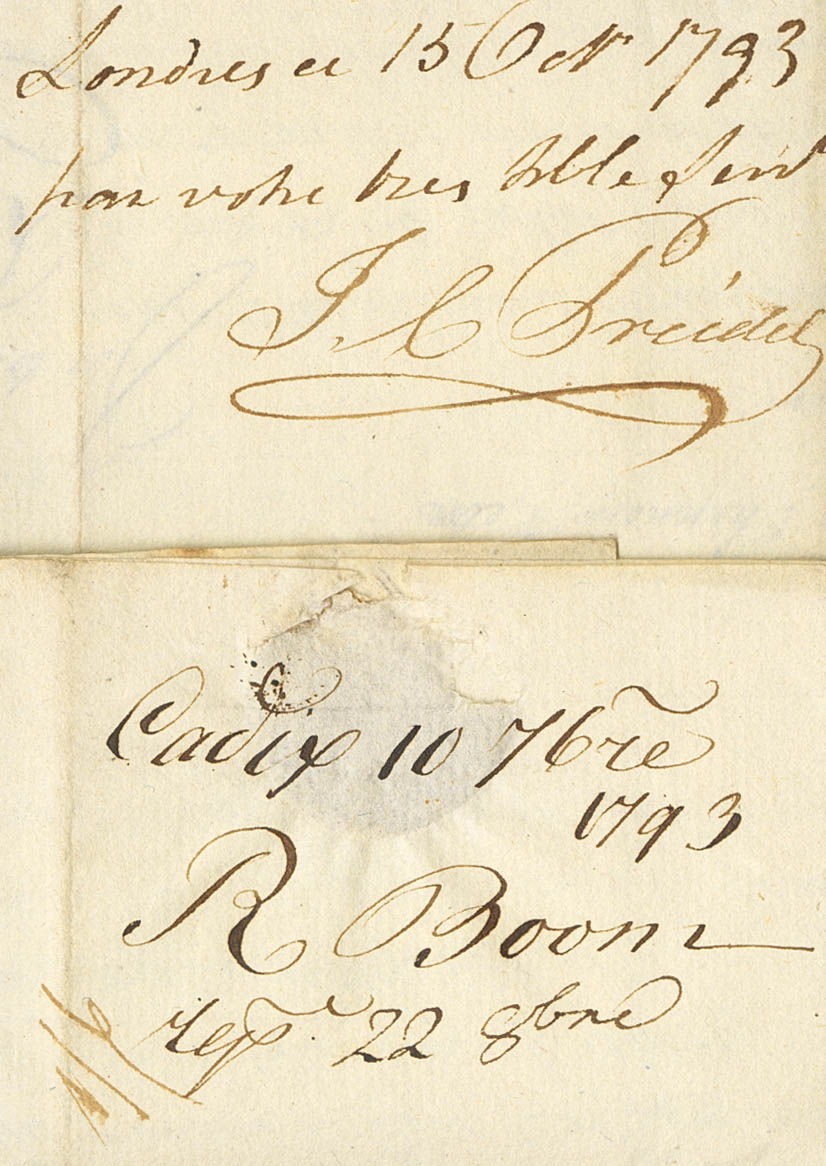 Londres ce 15 Octr 1793
par votre tres hble Servr
J. C. Preidel
Cadix 10 7bre
1793
R Boom
rep. 22 8bre
1/6